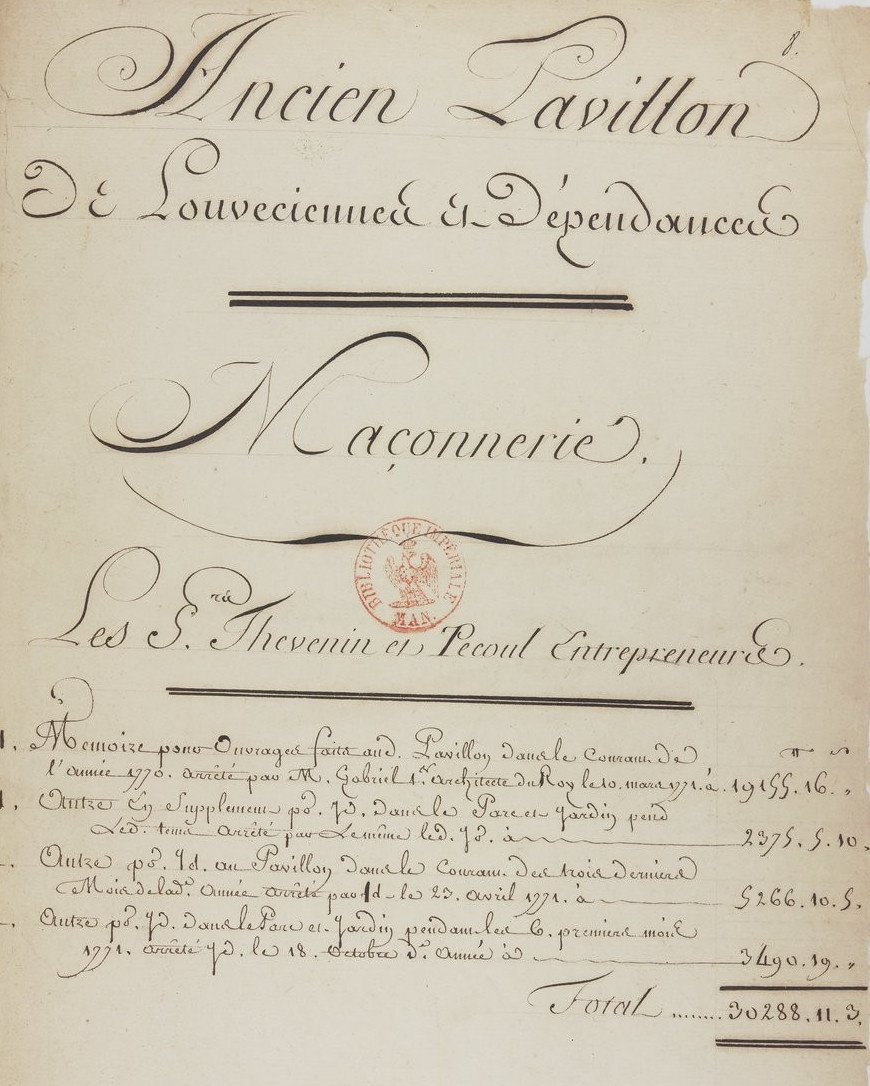 8.
Ancien Pavillon
De Louveciennes et Dépendances
Maçonnerie.
BIBLIOTHÈQUE IMPÉRIALE
MAN.
Les S.rs Thevenin et Pecoul Entrepreneurs.
1. Memoire pour Ouvrages faits aud. Pavillon dans le Courant de
₶ s
l'année 1770. arrêté par M. Gabriel 1.er architecte du Roy le 10. mars 1771. à 19155. 16. „
1. Autre En Supplement po. Jd. dans le Parc et Jardin pend
Led. tems arrêté par Le même led. Jo. à 2375. 5. 10.
Autre po. Jd. au Pavillon dans le Courant des trois derniers
Mois de lad. Année arrêté par Jd. le 23. avril 1771. à 5266. 10. 5.
Autre po. Jd. dans le Parc et Jardin pendant les 6. premiers mois
1771. arrêté Jd. le 18. Octobre d.e année à 3490. 19. „
Total ........ 30288. 11. 3.